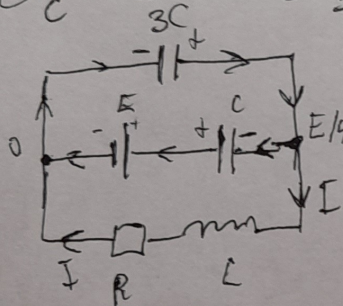 C 3C
- +
E C
- + + -
0 E/4
I
I R L